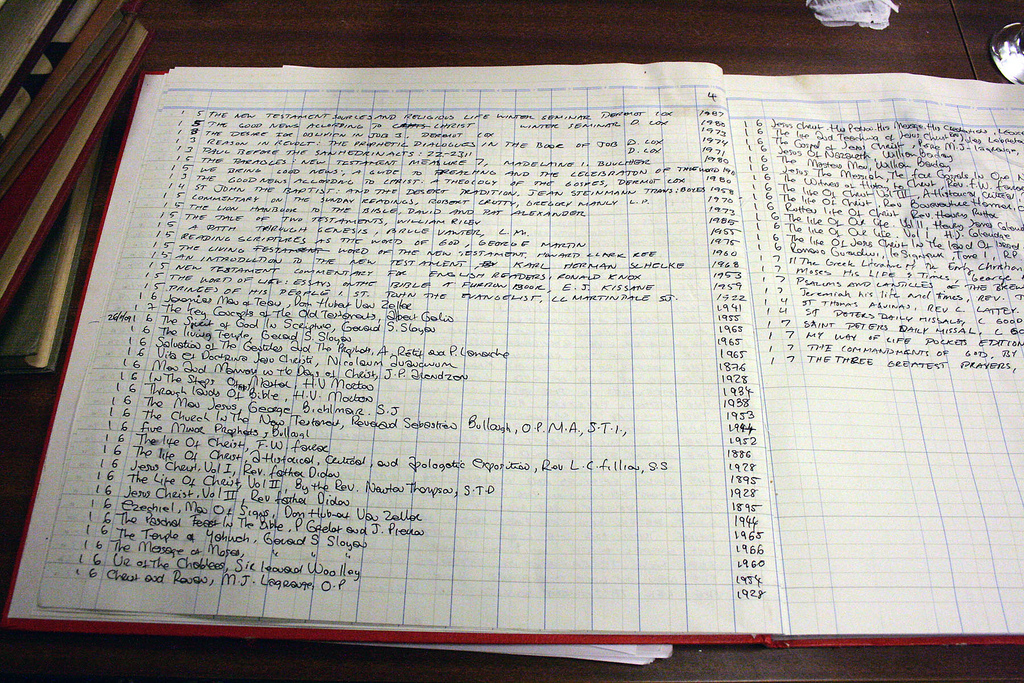 4
1 5 THE NEW TESTAMENT SOURCES AND RELIGIOUS LIFE WINTER SEMINAR DERMOT COX 1987
1 5 THE GOOD NEWS ACCORDING TO CHRIST WINTER SEMINAR D. COX 1980
1 8 THE DESIRE FOR OBLIVION IN JOB 3, DERMOT COX 1973
1 3 REASON IN REVOLT: THE PROPHETIC DIALOGUES IN THE BOOK OF JOB D. COX 1974
1 3 PAUL BEFORE THE SANHEDRIN ACTS: 22-2311 D. COX 1971
1 5 THE PARABLES: NEW TESTAMENT MEASURE 7, MADELAINE I. BUUCHER 1980
1 5 WE BRING GOOD NEWS, A GUIDE TO PREACHING AND THE CELEBRATION OF THE WORD
1 5 THE GOOD NEWS ACCORDING TO CHRIST: A THEOLOGY OF THE GOSPES, DERMOT COX 1986
1 4 ST JOHN THE BAPTIST: AND THE DESERT TRADITION, JEAN STEINMANN TRANS: BOYES 1958
1 5 COMMENTARY ON THE SUNDAY READINGS, ROBERT CRUTTY, GREGORY MANLY C.P. 1970
1 5 THE LION HANDBOOK TO THE BIBLE, DAVID AND PAT ALEXANDER 1973
1 5 THE TALE OF TWO TESTAMENTS, WILLIAM RILEY 1985
1 5 A PATH THROUGH GENESIS, BRUCE VAWTER, C.M. 1955
1 5 READING SCRIPTURES AS THE WORD OF GOD, GEORGE MARTIN 1975
1 5 THE LIVING WORD OF THE NEW TESTAMENT, HOWARD CLARK KEE 1960
1 5 AN INTRODUCTION TO THE NEW TESTAMENT BY KARL HERMAN SCHELKE 1968
1 5 NEW TESTAMENT COMMENTARY FOR ENGLISH READERS, RONALD KNOX 1953
1 5 THE WORD OF LIFE: ESSAYS ON THE BIBLE A FURROW BOOK, E.J. KISSANE 1959
1 5 PRINCES OF HIS PEOPLE 1 ST. JOHN THE EVANGELIST, CC MARTINDALE SJ. 1922
1 6 Jeremias Man of Tears, Dom Hubert Van Zeller 1941
1 6 The Key Concepts of the Old Testament, Albert Gelin 1955
1 6 The Spirit of Good In Scripture, Gerard S. Sloyan 1965
1 6 The living Temple, Gerard S. Sloyan 1965
1 6 Salvation of The Gentiles And The Prophets, A. Rétif and P. Lamarche 1965
1 6 Vita et Doctrina Jesu Christi, Nicolaum 1876
1 6 Man and Manners in the Days of Christ, J.P. Arendzen 1928
1 6 In The Steps Of Master, H.V Morton 1934
1 6 Through lands Of The Bible, H.V. Morton 1938
1 6 The Man Jesus, George Bichlmair. S.J 1953
1 6 The Church In The New Testament, Reverend Sebastian Bullough, O.P.M.A, S.T.L, 1944
1 6 Five Minor Prophets, 1952
1 6 The life Of Christ, F.W. farrar 1886
1 6 The life Of Christ, A Historical, Critical, and Apologetic Exposition, Rev L.C. fillion, S.S 1928
1 6 Jesus Christ, Vol I, Rev. father Didon 1895
1 6 The Life Of Christ, Vol II, By the Rev. Newton Thompson, S.T.D 1928
1 6 Jesus Christ, Vol II, Rev father Didon 1895
1 6 Ezechiel, Man Of Signs, Dom Hubert Van Zeller 1944
1 6 The Paschal Feast In The Bible, P Grelot and J. Pierron 1965
1 6 The Temple of Yahweh, Gerard S Sloyan 1966
1 6 The Message of Moses, " " " 1960
1 6 Ur of The Chaldees, Sir Leonard Woolley 1954
1 6 Christ and Renan, M.J. Lagrange, O.P 1928
1 6 Jesus Christ His Person His Message His Credentials,
1 6 The life And Teaching of Jesus Christ,
1 6 The Gospel of Jesus Christ, Père M.J. Lagrange,
1 6 Jesus Of Nazareth, William Barclay
1 6 The Masters Men, William Barclay
1 6 Jesus The Messiah, The four Gospels In One
1 6 The Witness of History to Christ Rev. F.W. Farrar
1 6 The life Of Christ Vol III, A Historical, Critical
1 6 The life Of Christ, Rev Bonaventure Hammer
1 6 Rutter life Of Christ, Rev Henry Rutter
1 6 The life Of Our life Vol II, Henry James Coleridge
1 6 The life Of Our life, Vol I, H.J. Coleridge
1 6 The life Of Jesus Christ In the land Of Israel
1 6 Romano Guardini, le Signeur, Tome I, R.P
1 7 The Greek Liturgies of The Early Christian
1 7 Moses His LIFE &
1 7 PSALMS AND CANTICLES OF THE BREV
1 7 Jeremiah his life and times, REV. J
1 4 ST THOMAS AQUINAS, REV C. LATTEY.
1 4 ST PETERS DAILY MISSALS, C GOOD
1 7 SAINT PETERS DAILY MISSAL, C GO
1 7 MY WAY OF LIFE POCKETS EDITION
1 7 THE COMMANDMENTS OF GOD, BY
1 7 THE THREE GREATEST PRAYERS,